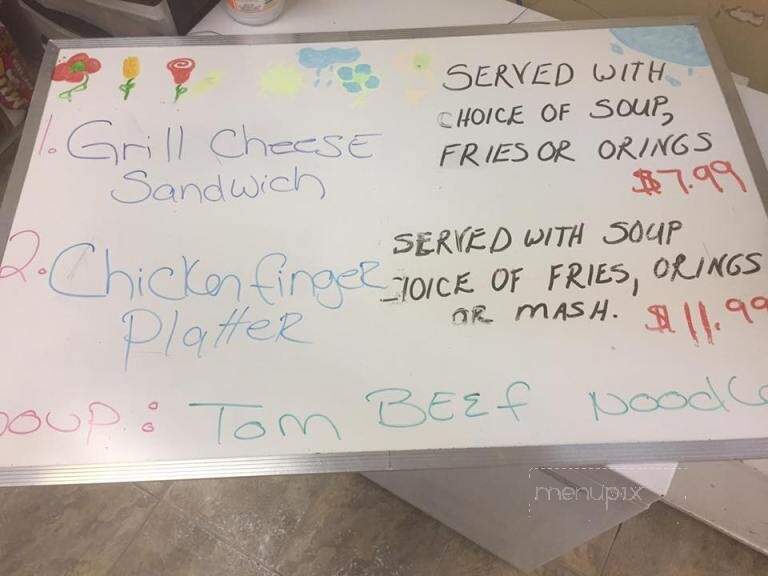 1. Grill Cheese
Sandwich
SERVED WITH
CHOICE OF SOUP,
FRIES OR ORINGS
$7.99
2. Chicken finger
Platter
SERVED WITH SOUP
HOICE OF FRIES, ORINGS
OR MASH.
$11.99
oup: Tom BEEf Noodle
menupix